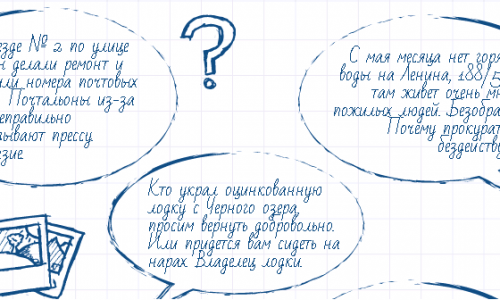 езде № 2 по улице
делали ремонт и
или номера почтовых
Почтальоны из-за
неправильно
ывают прессу
езие
?
С мая месяца нет горя
воды на Ленина, 188/5
там живет очень мн
пожилых людей. Безобра
Почему прокурат
бездейству
Кто украл оцинкованную
лодку с Черного озера
просим вернуть добровольно.
Или придется вам сидеть на
нарах Владелец лодки.